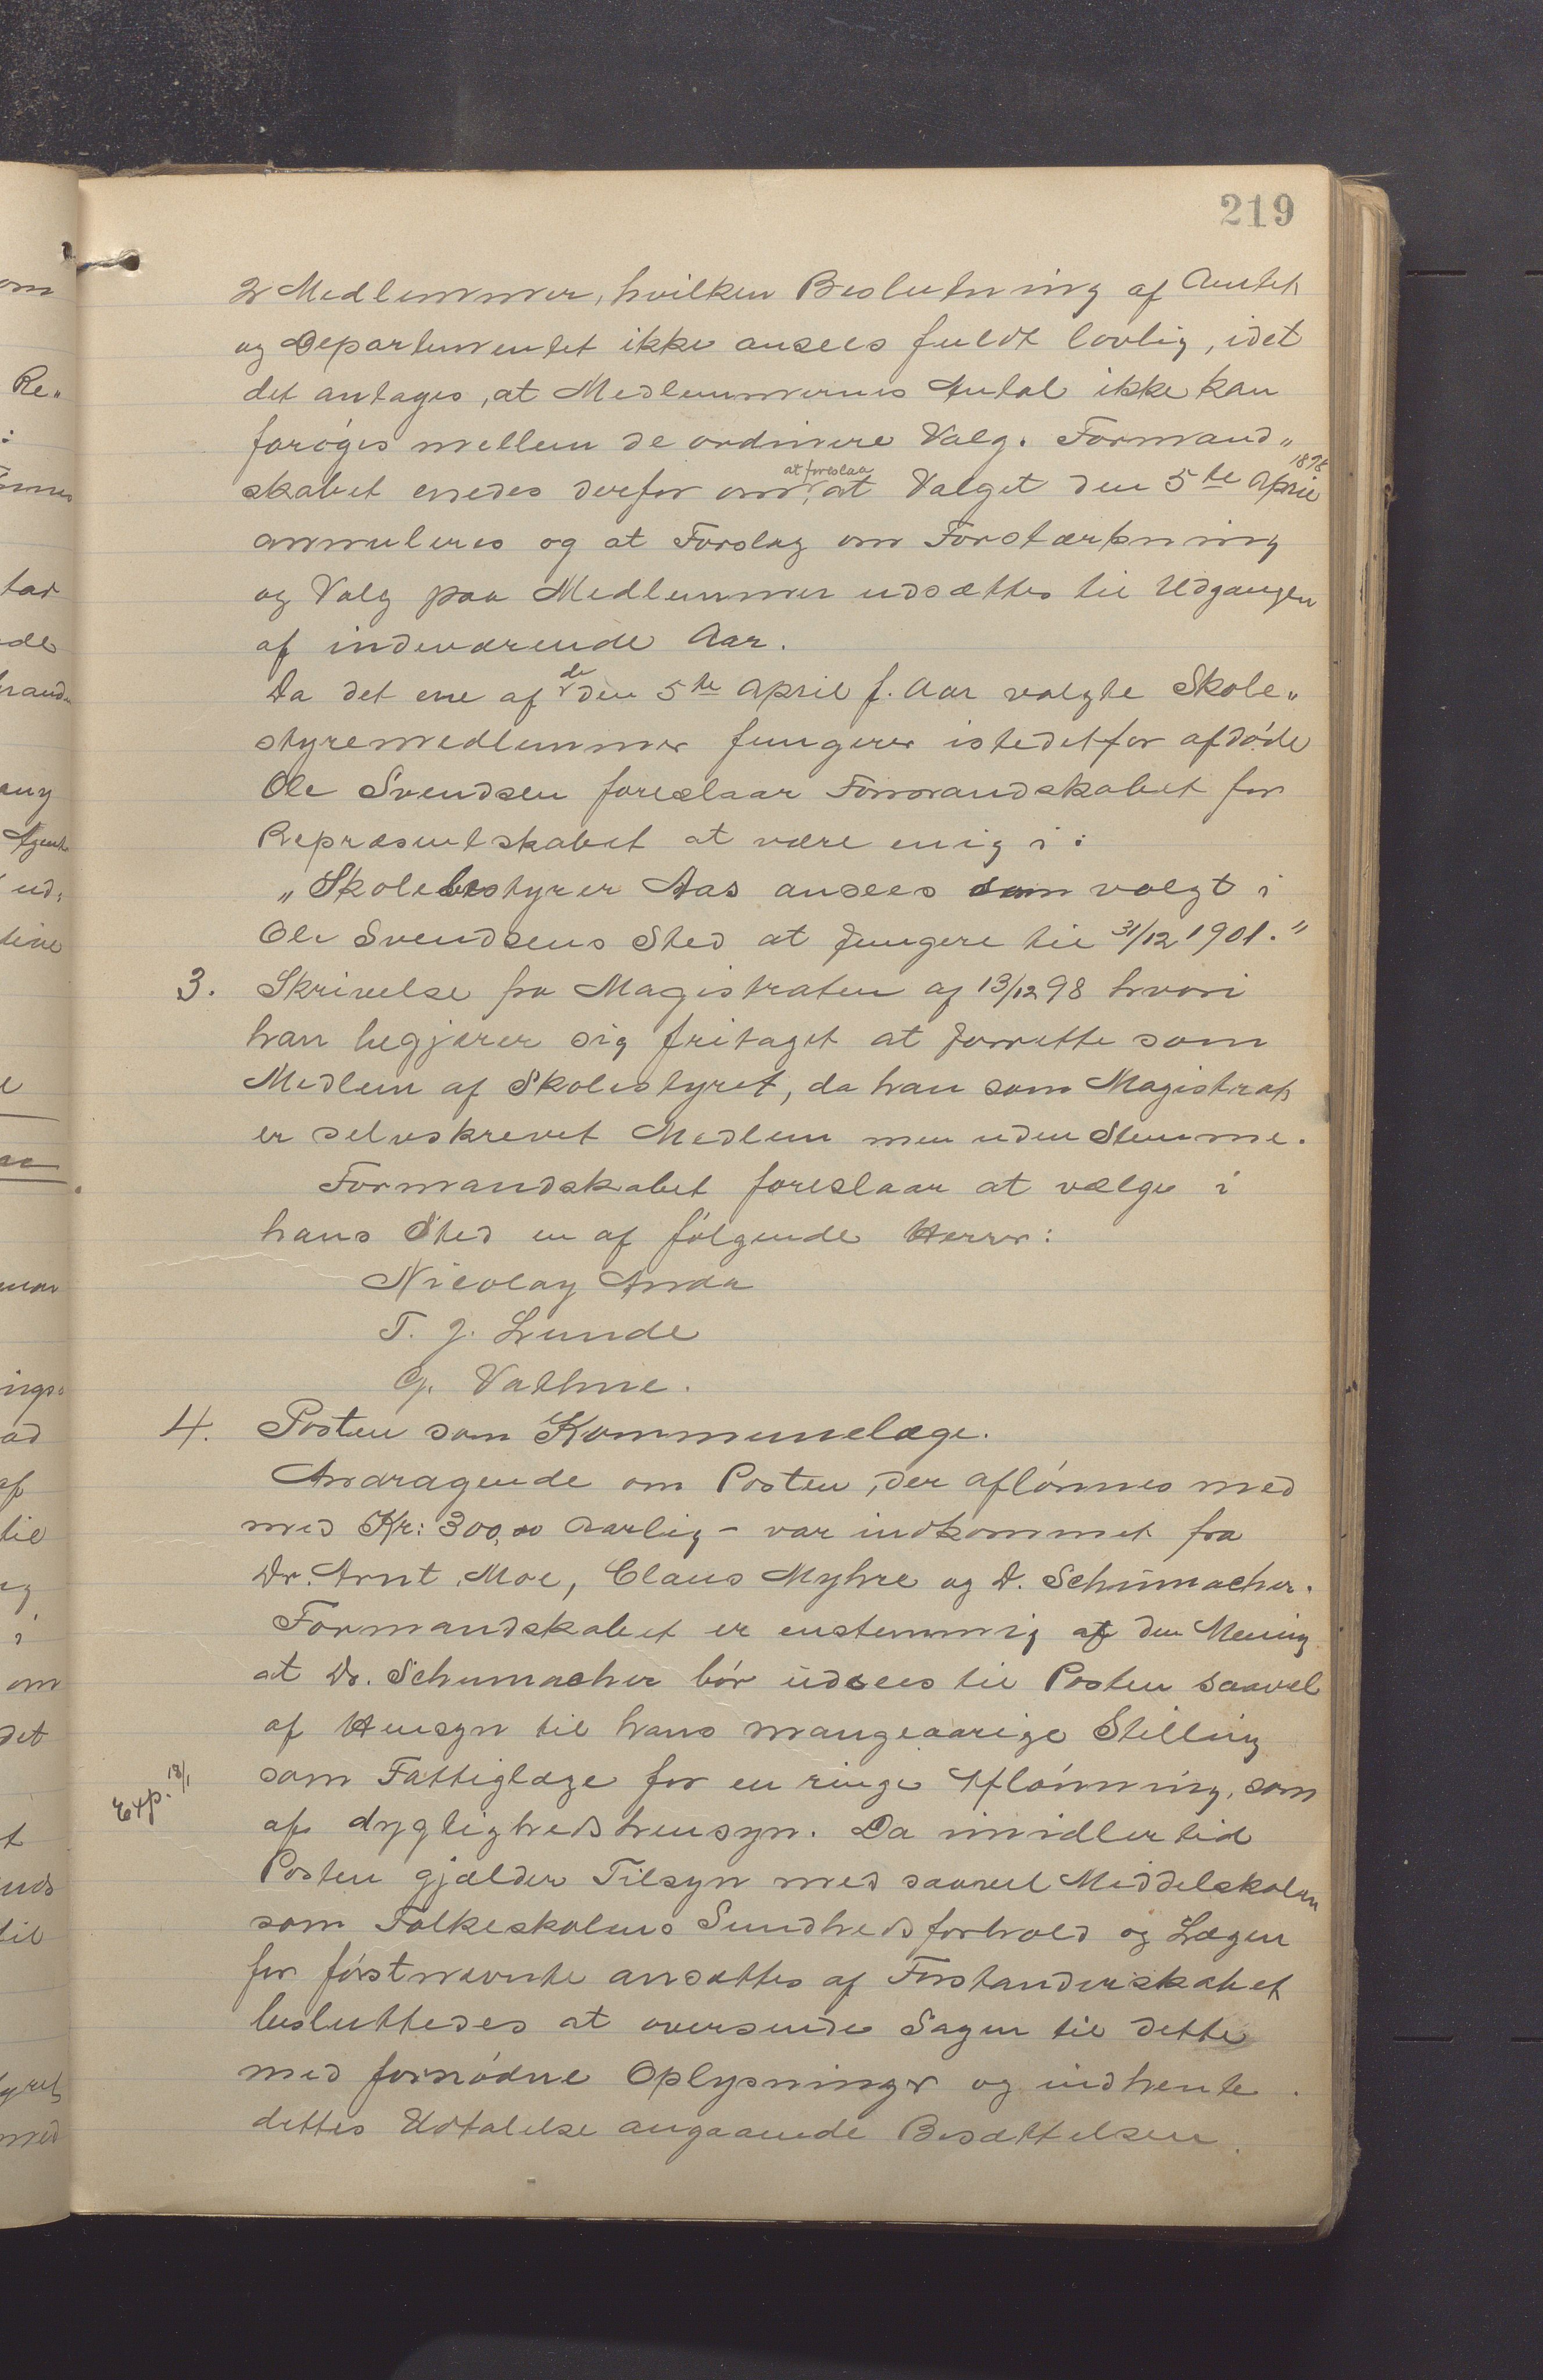 219
2 Medlemmer, hvilken Beslutning af Amtet
og Departementet ikke ansees fuldt lovlig, idet
det antages, at Medlemmernes Antal ikke kan
forøges mellem de ordinære Valg. Formand„
skabet enedes derfor om, at foreslaa at Valget den 5te April 1898
annuleres og at Forslag om Forstærkning
og Valg paa Medlemmer udsættes til Udgangen
af indeværende Aar.
Da det ene af de den 5te April f. Aar valgte Skole„
styremedlemmer fungerer istedetfor afdøde
Ole Svendsen foreslaar Formandskabet for
Repræsentskabet at være enig i:
„Skolebestyrer Aas ansees som valgt i
Ole Svendsens Sted at fungere til 31/12 1901."
3. Skrivelse fra Magistraten af 13/12 98 hvori
han begjærer sig fritaget at forrette som
Medlem af Skolestyret, da han som Magistrat
er selvskrevet Medlem men uden Stemme.
Formandskabet foreslaar at vælge i
hans Sted en af følgende Herrer:
Nicolay Anda
T. J. Lunde
G. Vathne.
4. Posten som Kommunelæge.
Andragende om Posten, der aflønnes med
med Kr: 300,00 aarlig – var indkommet fra
Dr. Arnt Moe, Claus Myhre og D. Schumacher.
Formandskabet er enstemmig af den Mening
at Dr. Schumacher bør udsees til Posten saavel
af Hensyn til hans mangeaarige Stilling
Exp. 13/1
som Fattiglæge for en ringe Aflønning, som
af dyglighedshensyn. Da imidlertid
Posten gjælder Tilsyn med saavel Middelskolen
som Folkeskolens Sundhedsforhold og Lægen
for førstnævnte ansættes af Forstanderskabet
besluttedes at oversende Sagen til dette
med fornødne Oplysninger og indhente
dettes Udtalelse angaaende Besættelsen.